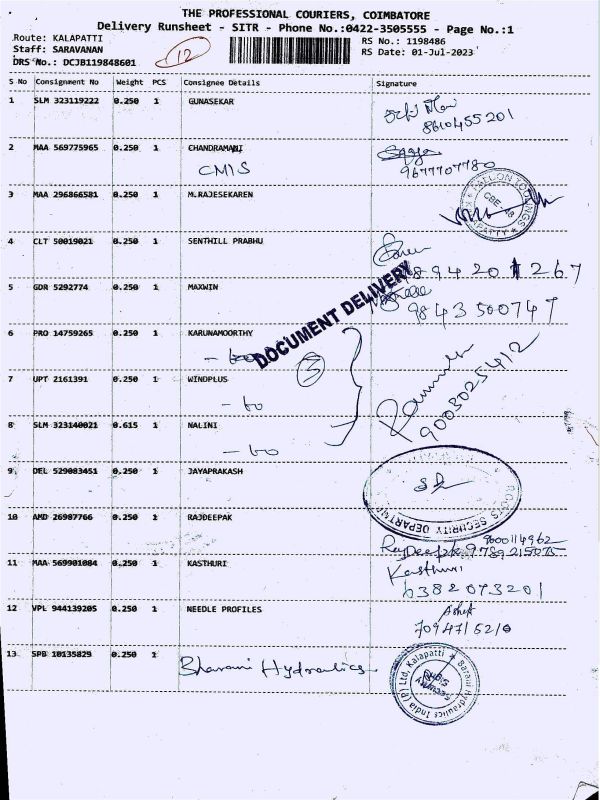 THE PROFESSIONAL COURIERS, COIMBATORE
Delivery Runsheet - SITR - Phone No.:0422-3505555 - Page No.:1
Route: KALAPATTI
RS No.: 1198486
Staff: SARAVANAN
12
RS Date: 01-Jul-2023
DRS No.: DCJB119848601
S No Consignment No Weight PCS Consignee Details Signature
1 SLM 323119222 0.250 1 GUNASEKAR
8610455201
2 MAA 569775965 0.250 1 CHANDRAMANI
CMIS
9677707780
3 MAA 296866581 0.250 1 M.RAJESEKAREN
4 CLT 50019021 0.250 1 SENTHILL PRABHU
DOCUMENT DELIVERY
5 GDR 5292774 0.250 1 MAXWIN
6 PRO 14759265 0.250 1 KARUNAMOORTHY
3
7 UPT 2161391 0.250 1 WINDPLUS
- to
9003025412
8 SLM 323140021 0.615 1 NALINI
- to
9 DEL 529083451 0.250 1 JAYAPRAKASH
ROOTS SECURITY DEPARTMENT
10 AMD 26987766 0.250 1 RAJDEEPAK
9600114962
Rajdeepak
11 MAA 569901084 0.250 1 KASTHURI
Kasthuri
6382073201
12 VPL 944139205 0.250 1 NEEDLE PROFILES
13 SPB 10135829 0.250 1 Bharani Hydraulics
Barani Hydraulics India (P) Ltd, Kalapatti